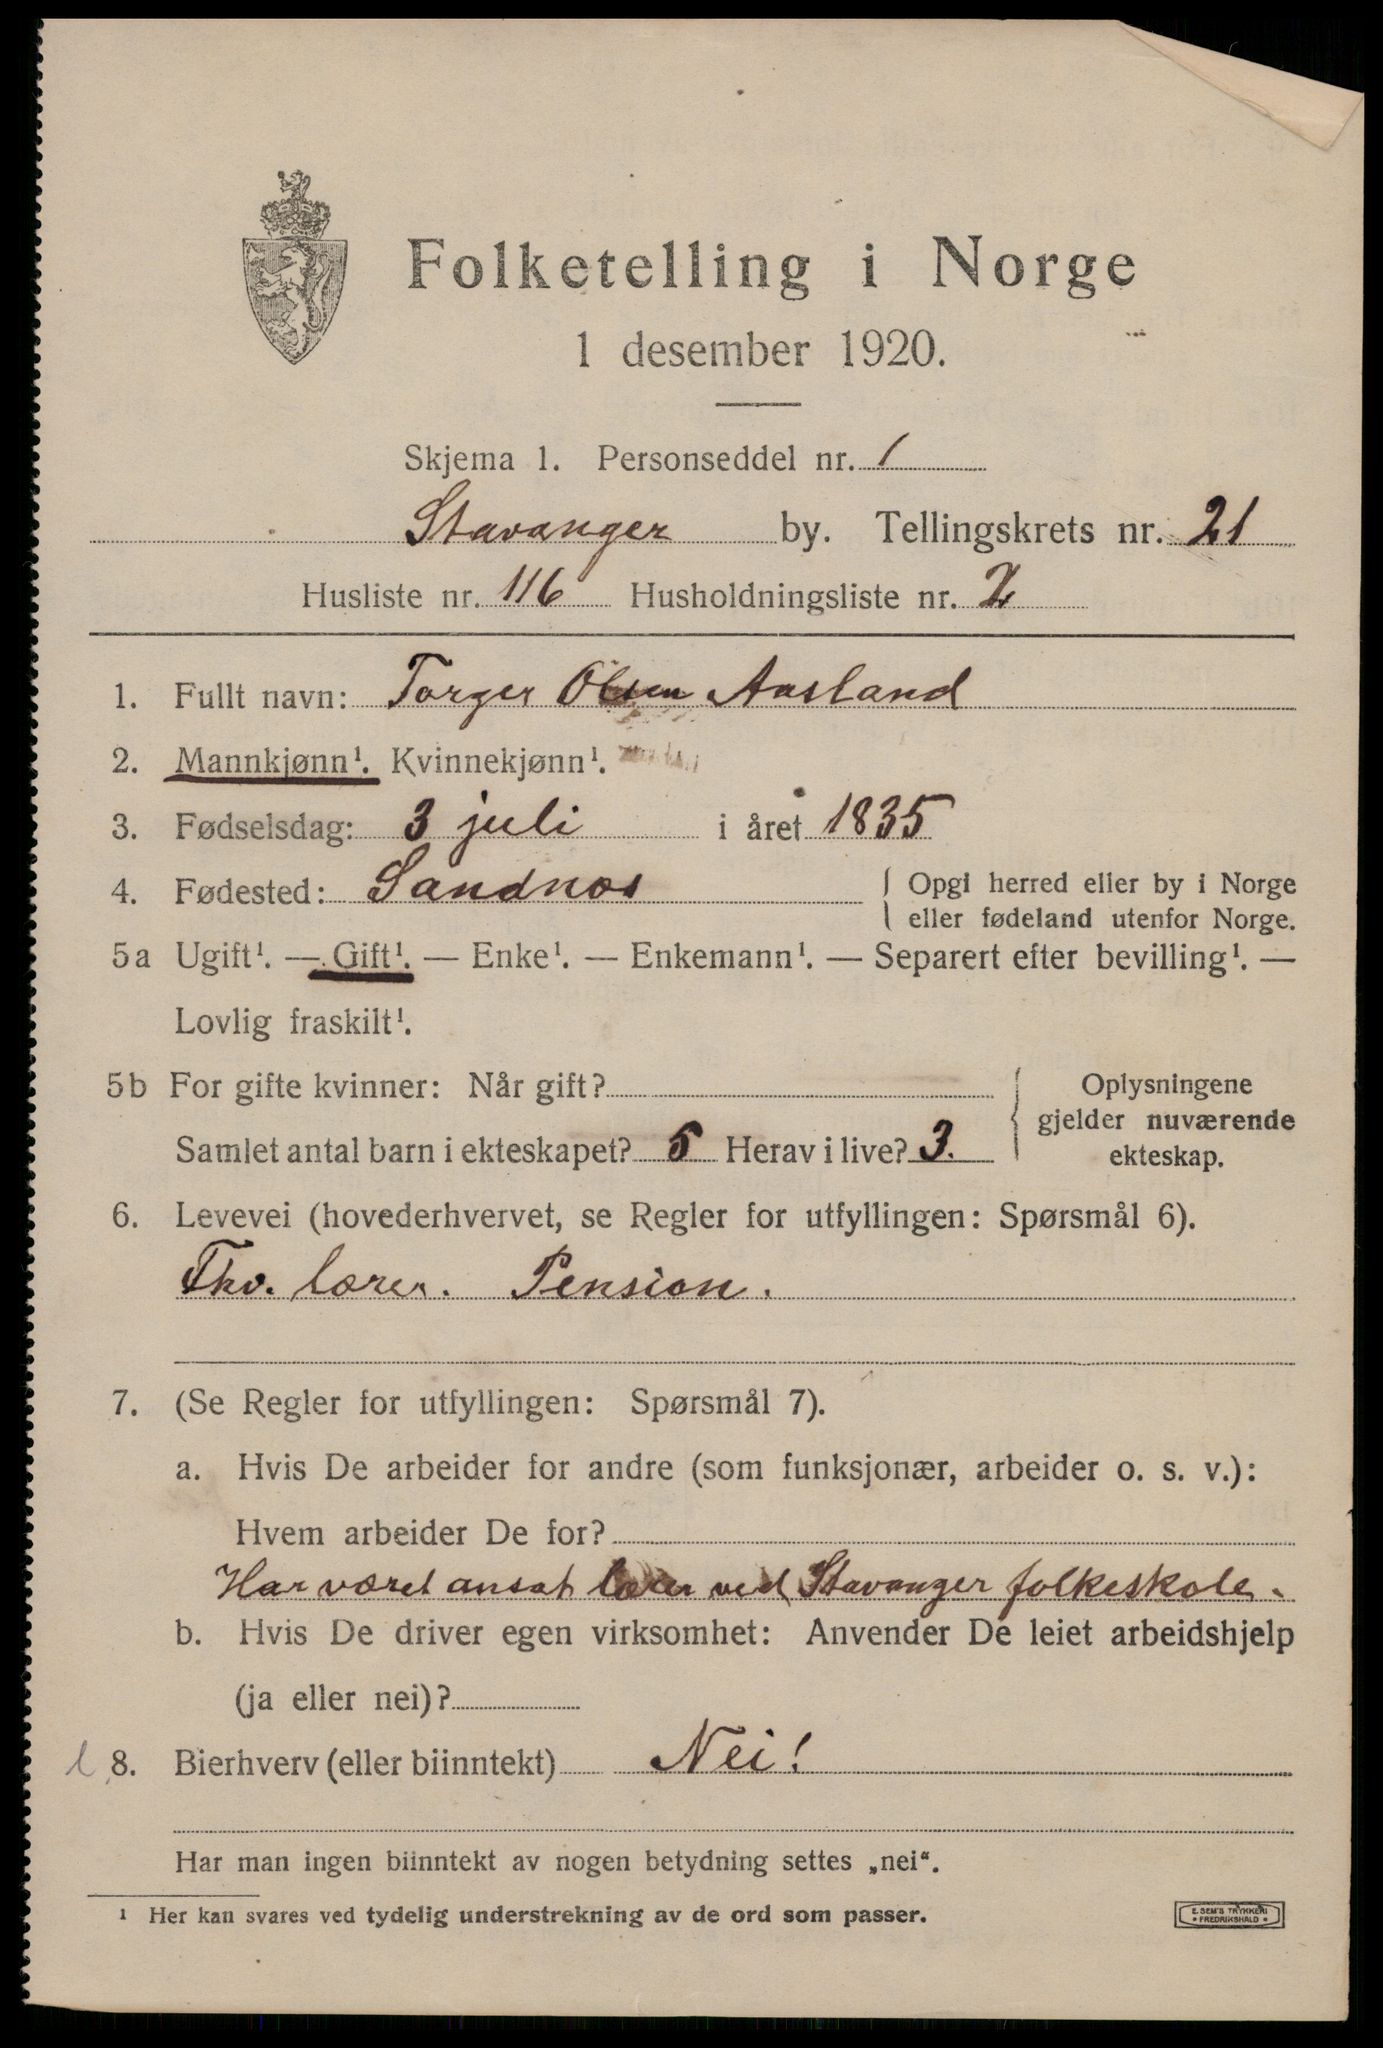 Folketelling i Norge
1 desember 1920.
Skjema 1. Personseddel nr. 1
Stavanger by. Tellingskrets nr. 21
Husliste nr. 116 Husholdningsliste nr. 2
1. Fullt navn: Torger Olsen Aasland
2. Mannkjønn¹. Kvinnekjønn¹.
3. Fødselsdag: 3 juli i året 1835
4. Fødested: Sandnæs { Opgi herred eller by i Norge
eller fødeland utenfor Norge.
5a Ugift¹. — Gift¹. — Enke¹. — Enkemann¹. — Separert efter bevilling¹. —
Lovlig fraskilt¹.
5b For gifte kvinner: Når gift?
Samlet antal barn i ekteskapet? 5 Herav i live? 3.
Oplysningene
gjelder nuværende
ekteskap.
6. Levevei (hovederhvervet, se Regler for utfyllingen: Spørsmål 6).
Fhv. lærer. Pension.
7. (Se Regler for utfyllingen: Spørsmål 7).
a. Hvis De arbeider for andre (som funksjonær, arbeider o. s. v.):
Hvem arbeider De for?
Har været ansat lærer ved Stavanger folkeskole.
b. Hvis De driver egen virksomhet: Anvender De leiet arbeidshjelp
(ja eller nei)?
8. Bierhverv (eller biinntekt) Nei!
Har man ingen biinntekt av nogen betydning settes „nei“.
¹ Her kan svares ved tydelig understrekning av de ord som passer.
E. SEM'S TRYKKERI
* FREDRIKSHALD *